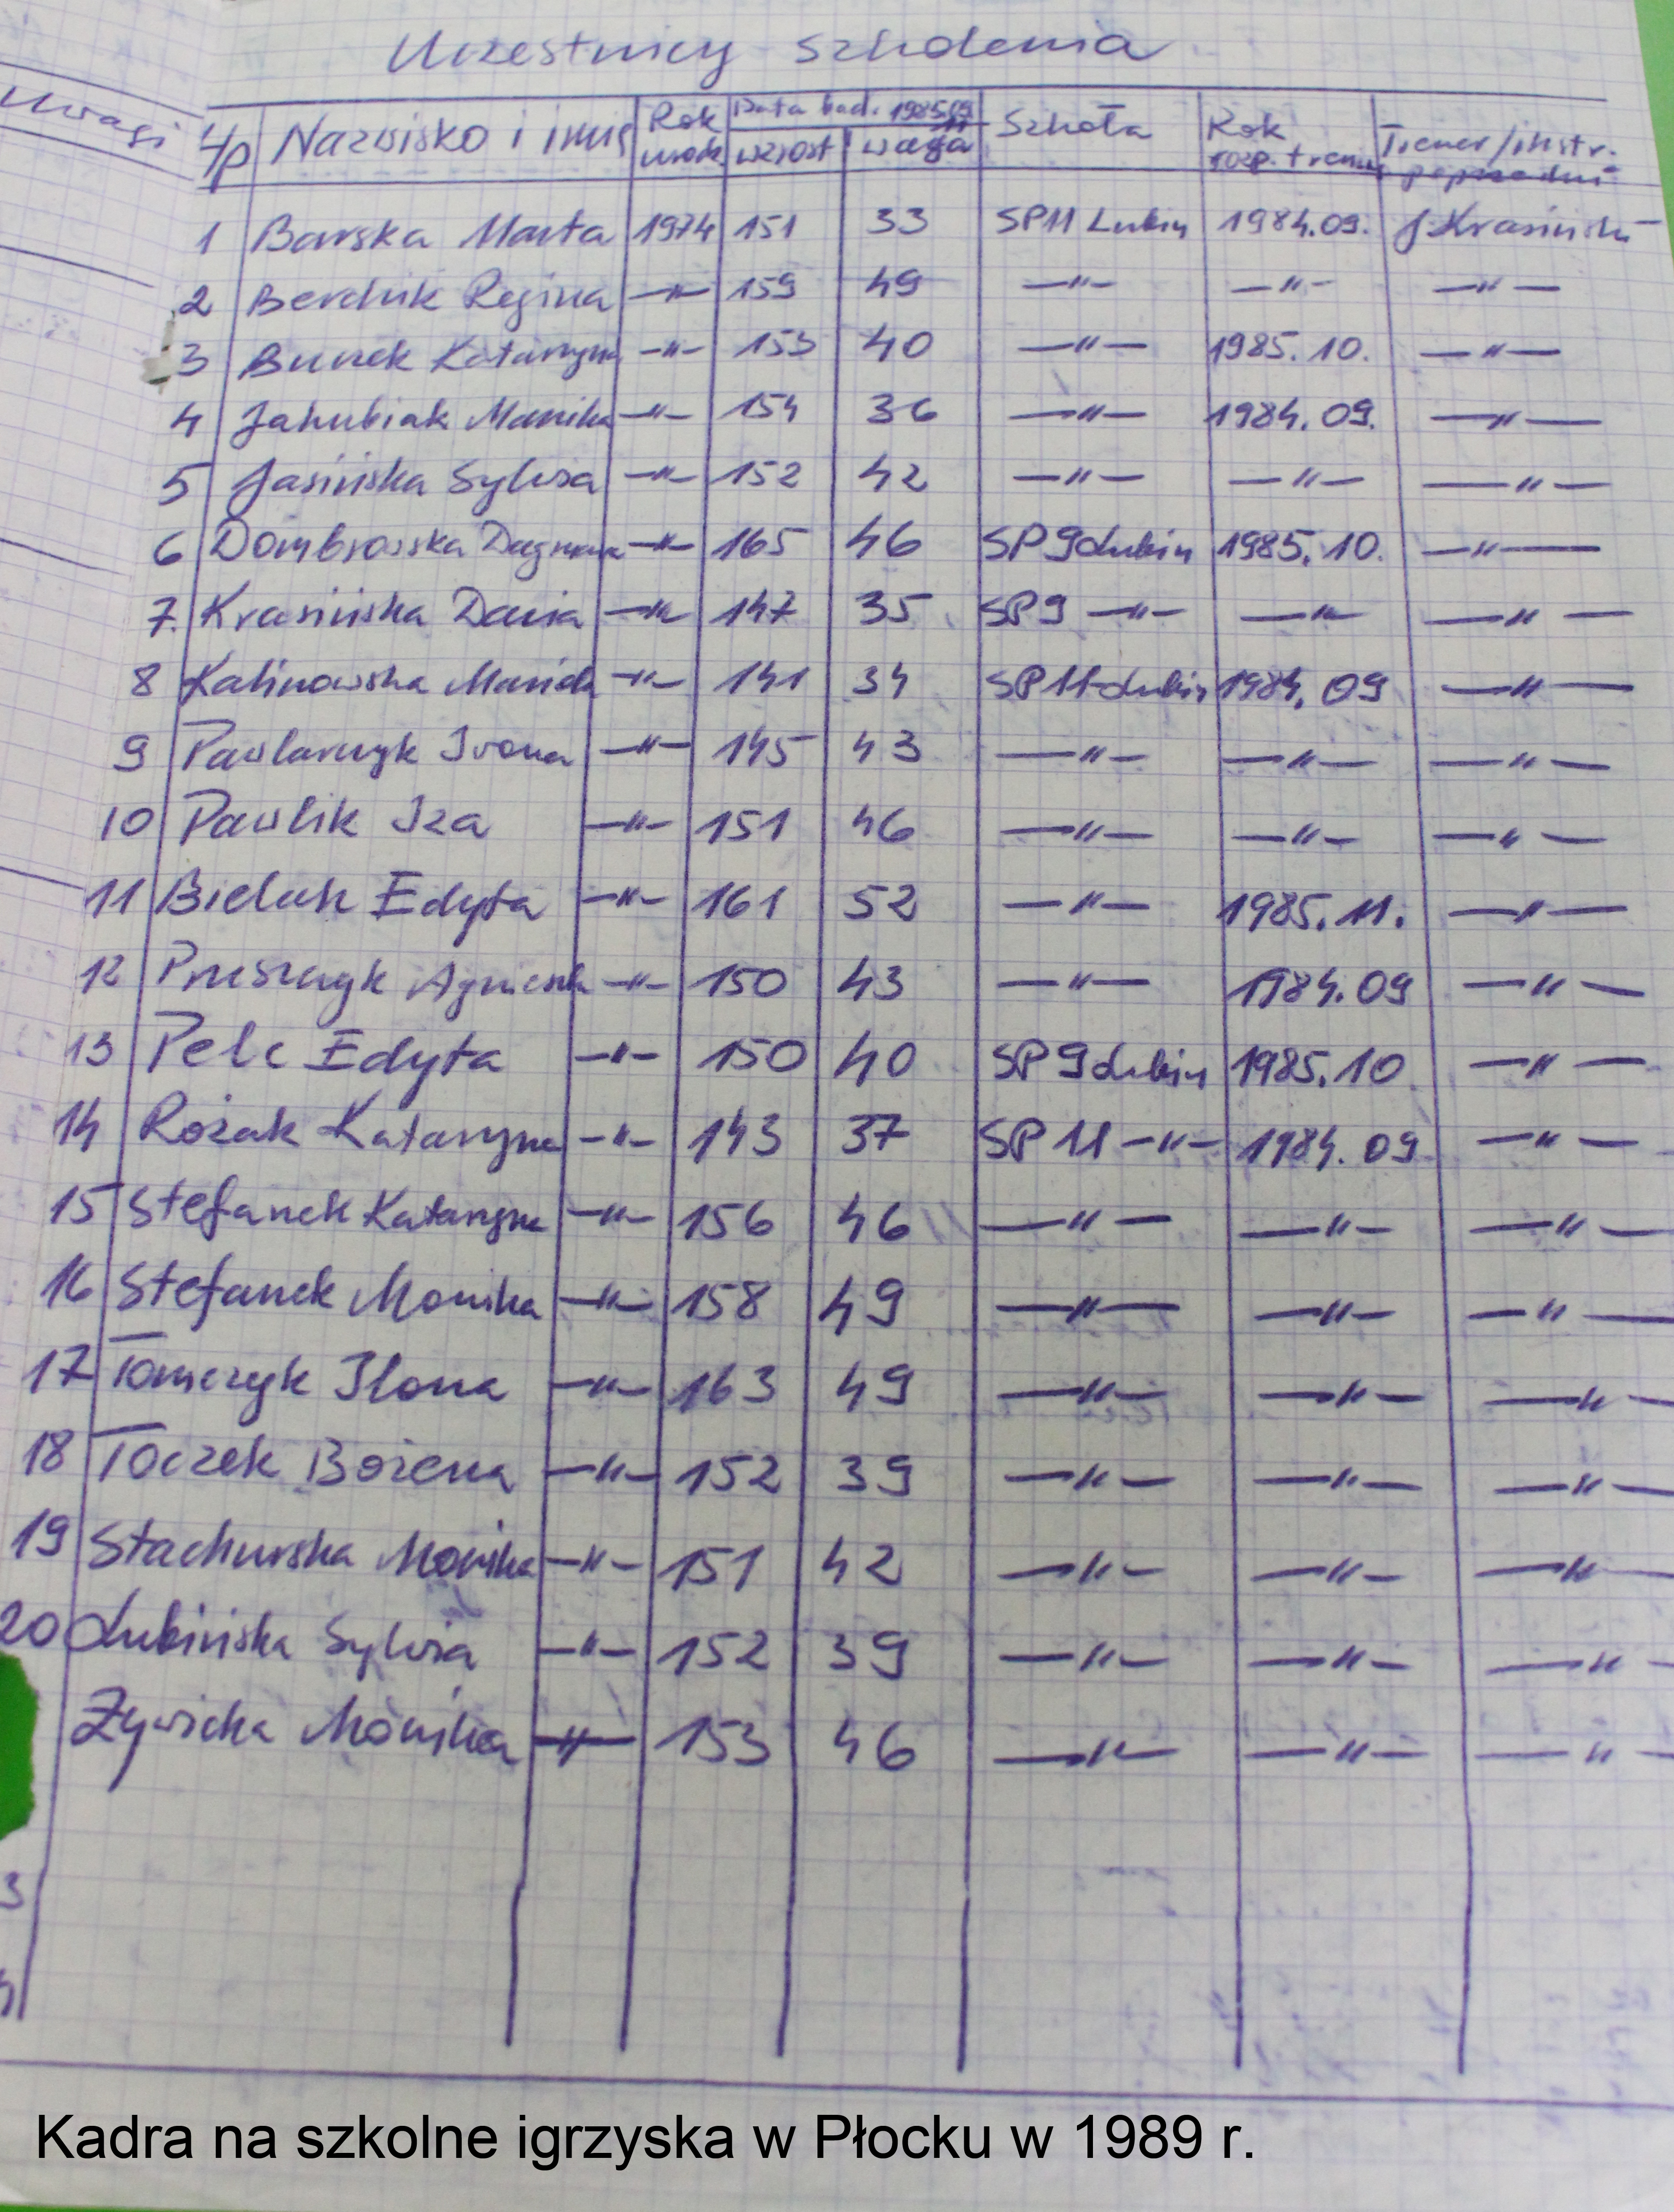 Uczestnicy szkolenia
Uwagi
L/p Nazwisko i imię Rok urodz. Data bad. 1985.09 wzrost waga Szkoła Rok rozp. tren. Trener/instr.
1 Barska Marta 1974 151 33 SP11 Lubin 1984.09. J. Krasiński
2 Berdnik Regina —"— 159 49 —"— —"— —"—
3 Bunek Katarzyna —"— 153 40 —"— 1985.10. —"—
4 Jakubiak Monika —"— 154 36 —"— 1984.09. —"—
5 Jasińska Sylwia —"— 152 42 —"— —"— —"—
6 Dombrowska Dagmara —"— 165 46 SP 9 Lubin 1985.10. —"—
7. Krasińska Daria —"— 147 35 SP9 —"— —"— —"—
8 Kalinowska Mariola —"— 141 34 SP 11 Lubin 1984.09 —"—
9 Pawlarczyk Iwona —"— 145 43 —"— —"— —"—
10 Pawlik Iza —"— 151 46 —"— —"— —"—
11 Bielak Edyta —"— 161 52 —"— 1985.11. —"—
12 Agnieszka —"— 150 43 —"— 1984.09 —"—
13 Pelc Edyta —"— 150 40 SP 9 Lubin 1985.10 —"—
14 Rożak Katarzyna —"— 143 37 SP 11 —"— 1984.09 —"—
15 Stefanek Katarzyna —"— 156 46 —"— —"— —"—
16 Stefanek Monika —"— 158 49 —"— —"— —"—
17 Tomczyk Ilona —"— 163 49 —"— —"— —"—
18 Toczek Bożena —"— 152 39 —"— —"— —"—
19 Stachurska Monika —"— 151 42 —"— —"— —"—
20 Lubińska Sylwia —"— 152 39 —"— —"— —"—
Żywicka Monika —"— 153 46 —"— —"— —"—
3
Kadra na szkolne igrzyska w Płocku w 1989 r.